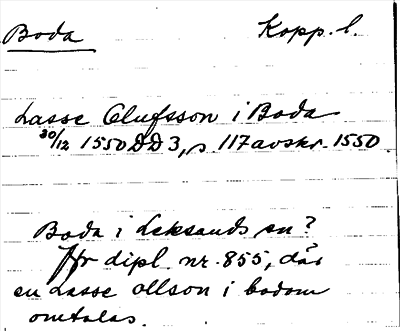 Boda Kopp. l.
Lasse Olufsson i Boda
30/12 1550 DD 3, s. 117 avskr. 1550
Boda i Leksands sn?
Jfr dipl. nr. 855, där
en Lasse Ollson i bodom
omtalas.